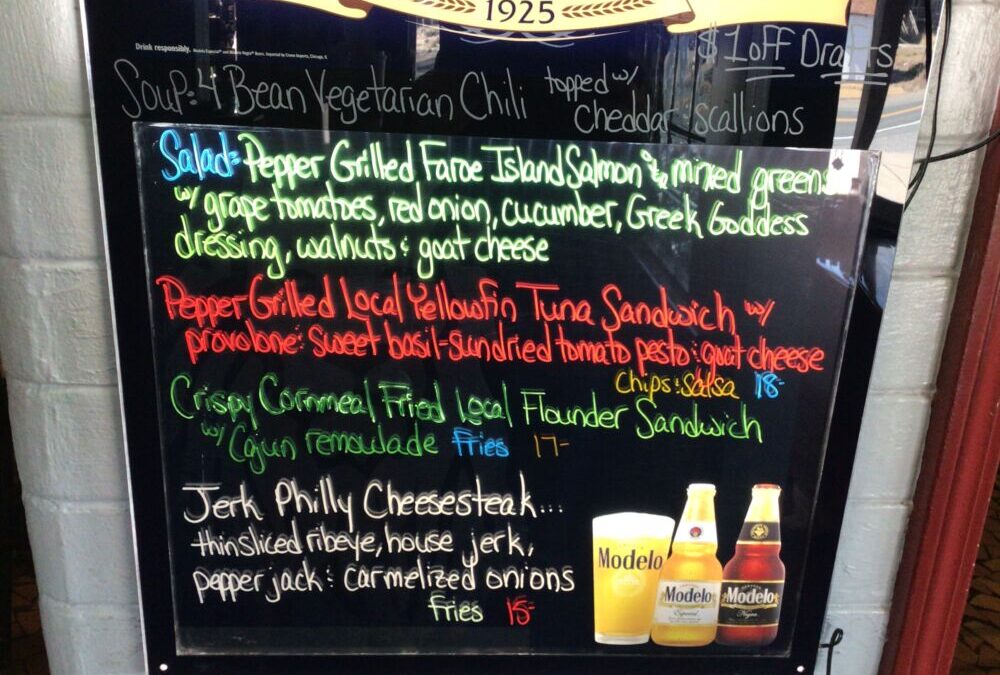 1925
Drink responsibly.
$1 off Drafts
Soup: 4 Bean Vegetarian Chili topped w/
cheddar : scallions
Salad: Pepper Grilled Faroe Island Salmon & mixed greens
w/ grape tomatoes, red onion, cucumber, Greek Goddess
dressing, walnuts : goat cheese
Pepper Grilled Local Yellowfin Tuna Sandwich w/
provolone : sweet basil-sundried tomato pesto : goat cheese
Chips : Salsa 18-
Crispy Cornmeal Fried Local Flounder Sandwich
w/ Cajun remoulade Fries 17-
Jerk Philly Cheesesteak...
thin sliced ribeye, house jerk,
pepper jack : carmelized onions
Fries 15-
Modelo
Modelo
Especial
Modelo
Negra